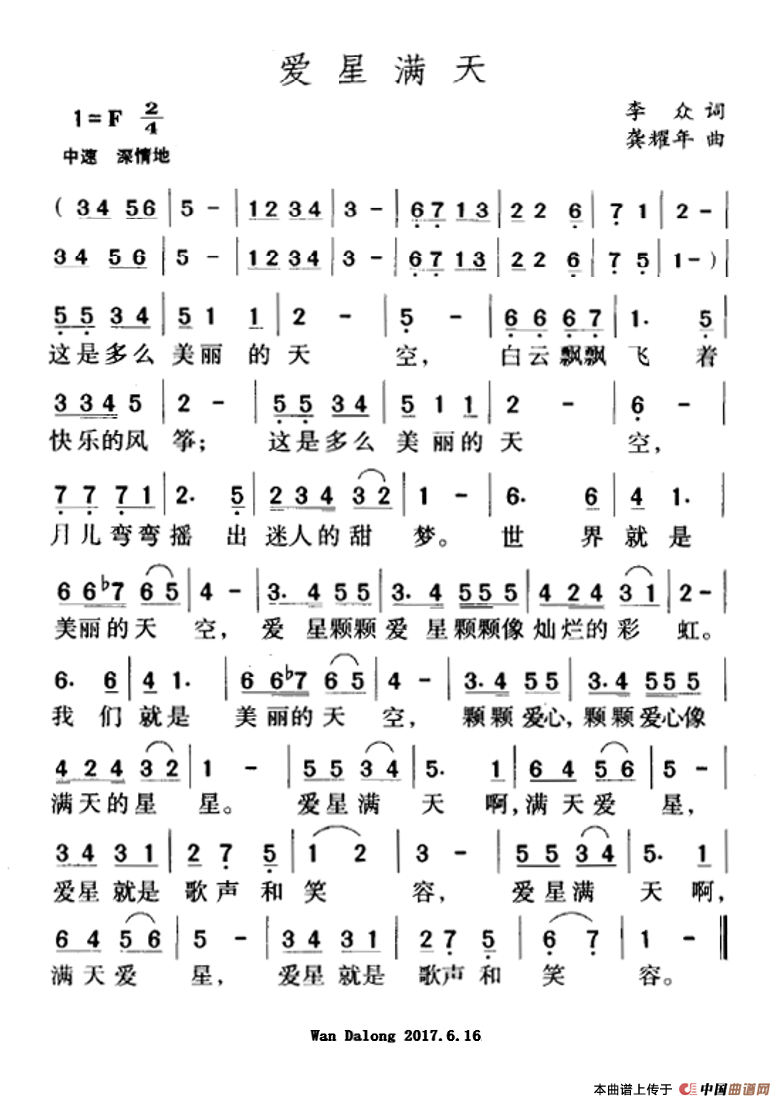 爱星满天
1=F 2/4
李 众 词
中速 深情地
龚耀年 曲
( 3 4 5 6 | 5 - | 1 2 3 4 | 3 - | 6 7 1 3 | 2 2 6 | 7 1 | 2 - |
3 4 5 6 | 5 - | 1 2 3 4 | 3 - | 6 7 1 3 | 2 2 6 | 7 5 | 1 - ) |
5 5 3 4 | 5 1 1 | 2 - | 5 - | 6 6 6 7 | 1. 5 |
这是多么 美丽 的 天 空, 白云飘飘 飞 着
3 3 4 5 | 2 - | 5 5 3 4 | 5 1 1 | 2 - | 6 - |
快乐的风 筝; 这是多么 美丽的 天 空,
7 7 7 1 | 2. 5 | 2 3 4 3 2 | 1 - | 6. 6 | 4 1. |
月儿弯弯 摇 出 迷人的甜 梦。 世 界 就是
6 6 ♭7 6 5 | 4 - | 3. 4 5 5 | 3. 4 5 5 5 | 4 2 4 3 1 | 2 - |
美丽的天 空, 爱 星颗颗 爱 星颗颗像 灿烂的彩 虹。
6. 6 | 4 1. | 6 6 ♭7 6 5 | 4 - | 3. 4 5 5 | 3. 4 5 5 5 |
我 们 就是 美丽的天 空, 颗颗爱心, 颗颗爱心像
4 2 4 3 2 | 1 - | 5 5 3 4 | 5. 1 | 6 4 5 6 | 5 - |
满天的星 星。 爱星满 天 啊, 满天爱 星,
3 4 3 1 | 2 7 5 | 1 2 | 3 - | 5 5 3 4 | 5. 1 |
爱星就是 歌声和 笑 容, 爱星满 天 啊,
6 4 5 6 | 5 - | 3 4 3 1 | 2 7 5 | 6 7 | 1 - ‖
满天爱 星, 爱星就是 歌声和 笑 容。
Wan Dalong 2017.6.16
本曲谱上传于 中国曲谱网